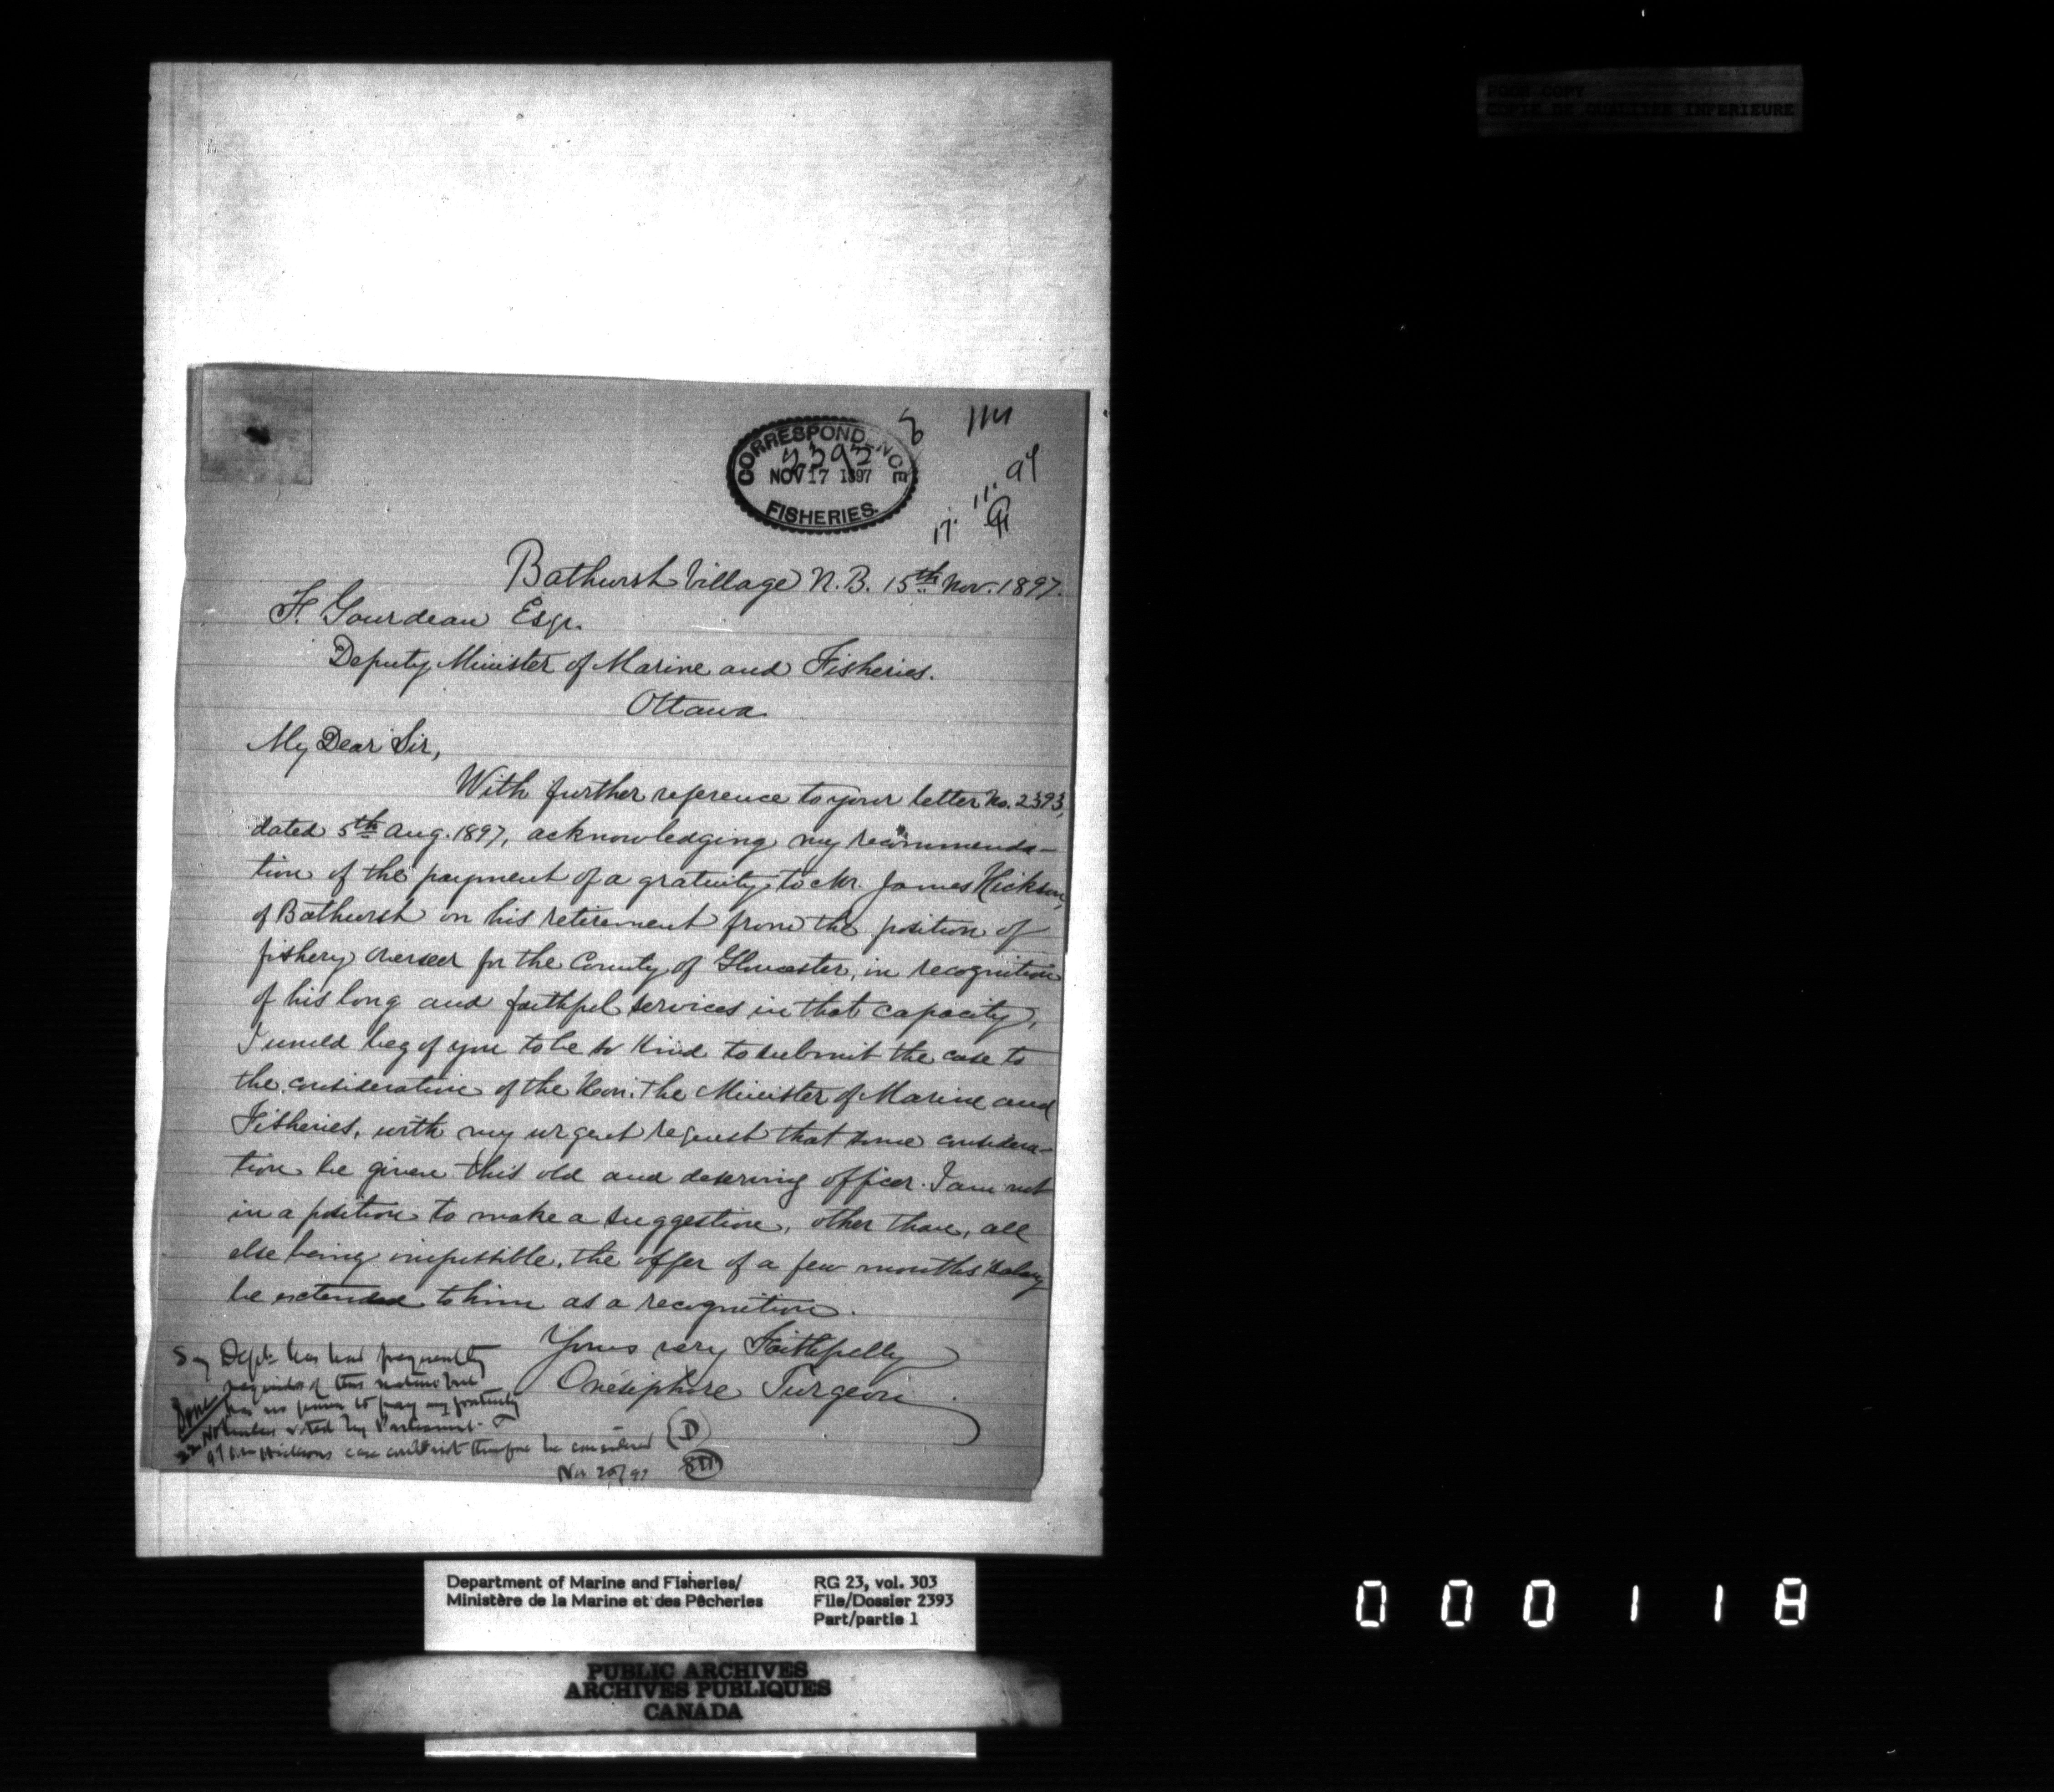 POOR COPY
COPIE DE QUALITEE INFERIEURE
CORRESPONDENCE
2393
NOV 17 1897
FISHERIES.
17. 11. 97
Bathurst Village N.B. 15th Nov. 1897.
F. Gourdeau Esqr.
Deputy Minister of Marine and Fisheries.
Ottawa.
My Dear Sir,
With further reference to your letter No. 2393,
dated 5th Aug. 1897, acknowledging my recommenda-
tion of the payment of a gratuity to Mr. James Hickson,
of Bathurst on his retirement from the position of
fishery overseer for the County of Gloucester, in recognition
of his long and faithful services in that capacity,
I would beg of you to be so kind to submit the case to
the consideration of the Hon. the Minister of Marine and
Fisheries, with my urgent request that some considera-
tion be given this old and deserving officer. I am not
in a position to make a suggestion, other than, all
else being impossible, the offer of a few months' salary
be extended to him as a recognition.
Yours very Faithfully
Onésiphore Turgeon
Say Dept. has had frequently
requests of this nature but
has no power to pay any gratuity
unless voted by Parliament
Mr Hicksons case could not therefore be considered
Nov 20/97
Done
22 Nov
97
Department of Marine and Fisheries/
Ministère de la Marine et des Pêcheries
RG 23, vol. 303
File/Dossier 2393
Part/partie 1
PUBLIC ARCHIVES
ARCHIVES PUBLIQUES
CANADA
000118